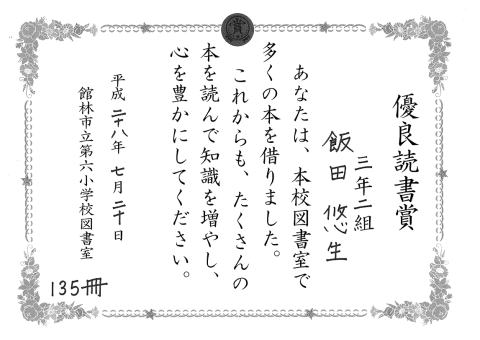 賞
優良読書賞
三年二組
飯田 悠生
あなたは、本校図書室で
多くの本を借りました。
これからも、たくさんの
本を読んで知識を増やし、
心を豊かにしてください。
平成二十八年 七月 二十日
館林市立第六小学校図書室
135冊